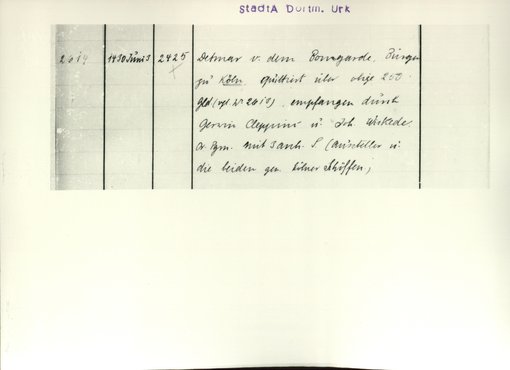 StadtA Dortm. Urk
2619 1430 Juni 3 2425 Detmar v. dem Bomgarde, Bürger
zu Köln, quittiert über obige 250
Gld (vgl. Nr 2618), empfangen durch
Gerwin Cleppinc u. Joh. Wickede
Bgm. mit 3 anh. S (Aussteller u
die beiden gen. Kölner Schöffen)